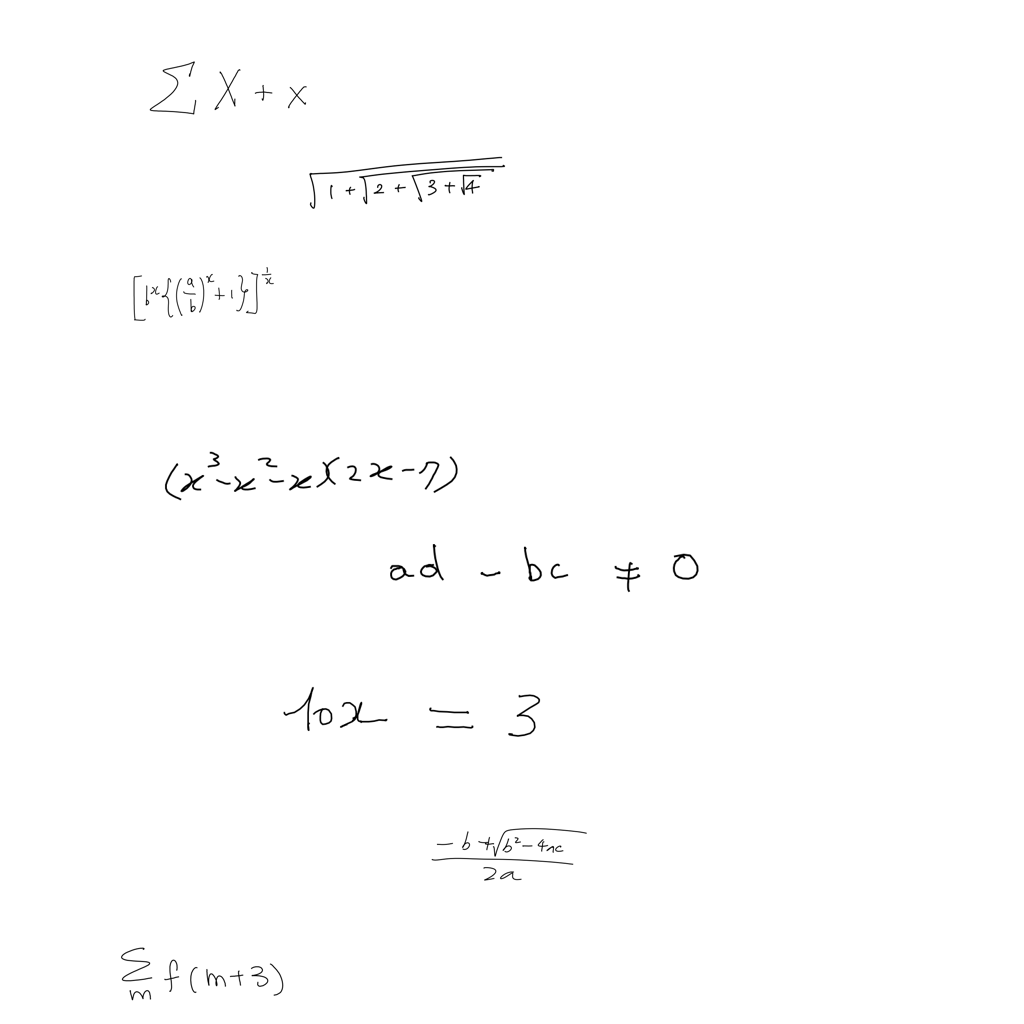 ∑ X + x
√(1 + √(2 + √(3 + √4)))
[b^x{(a/b)^x + 1}]^(1/x)
(x^3 - x^2 - x)(2x - 7)
ad - bc ≠ 0
10x = 3
(-b + √(b^2 - 4ac))/(2a)
∑_m f(m+3)